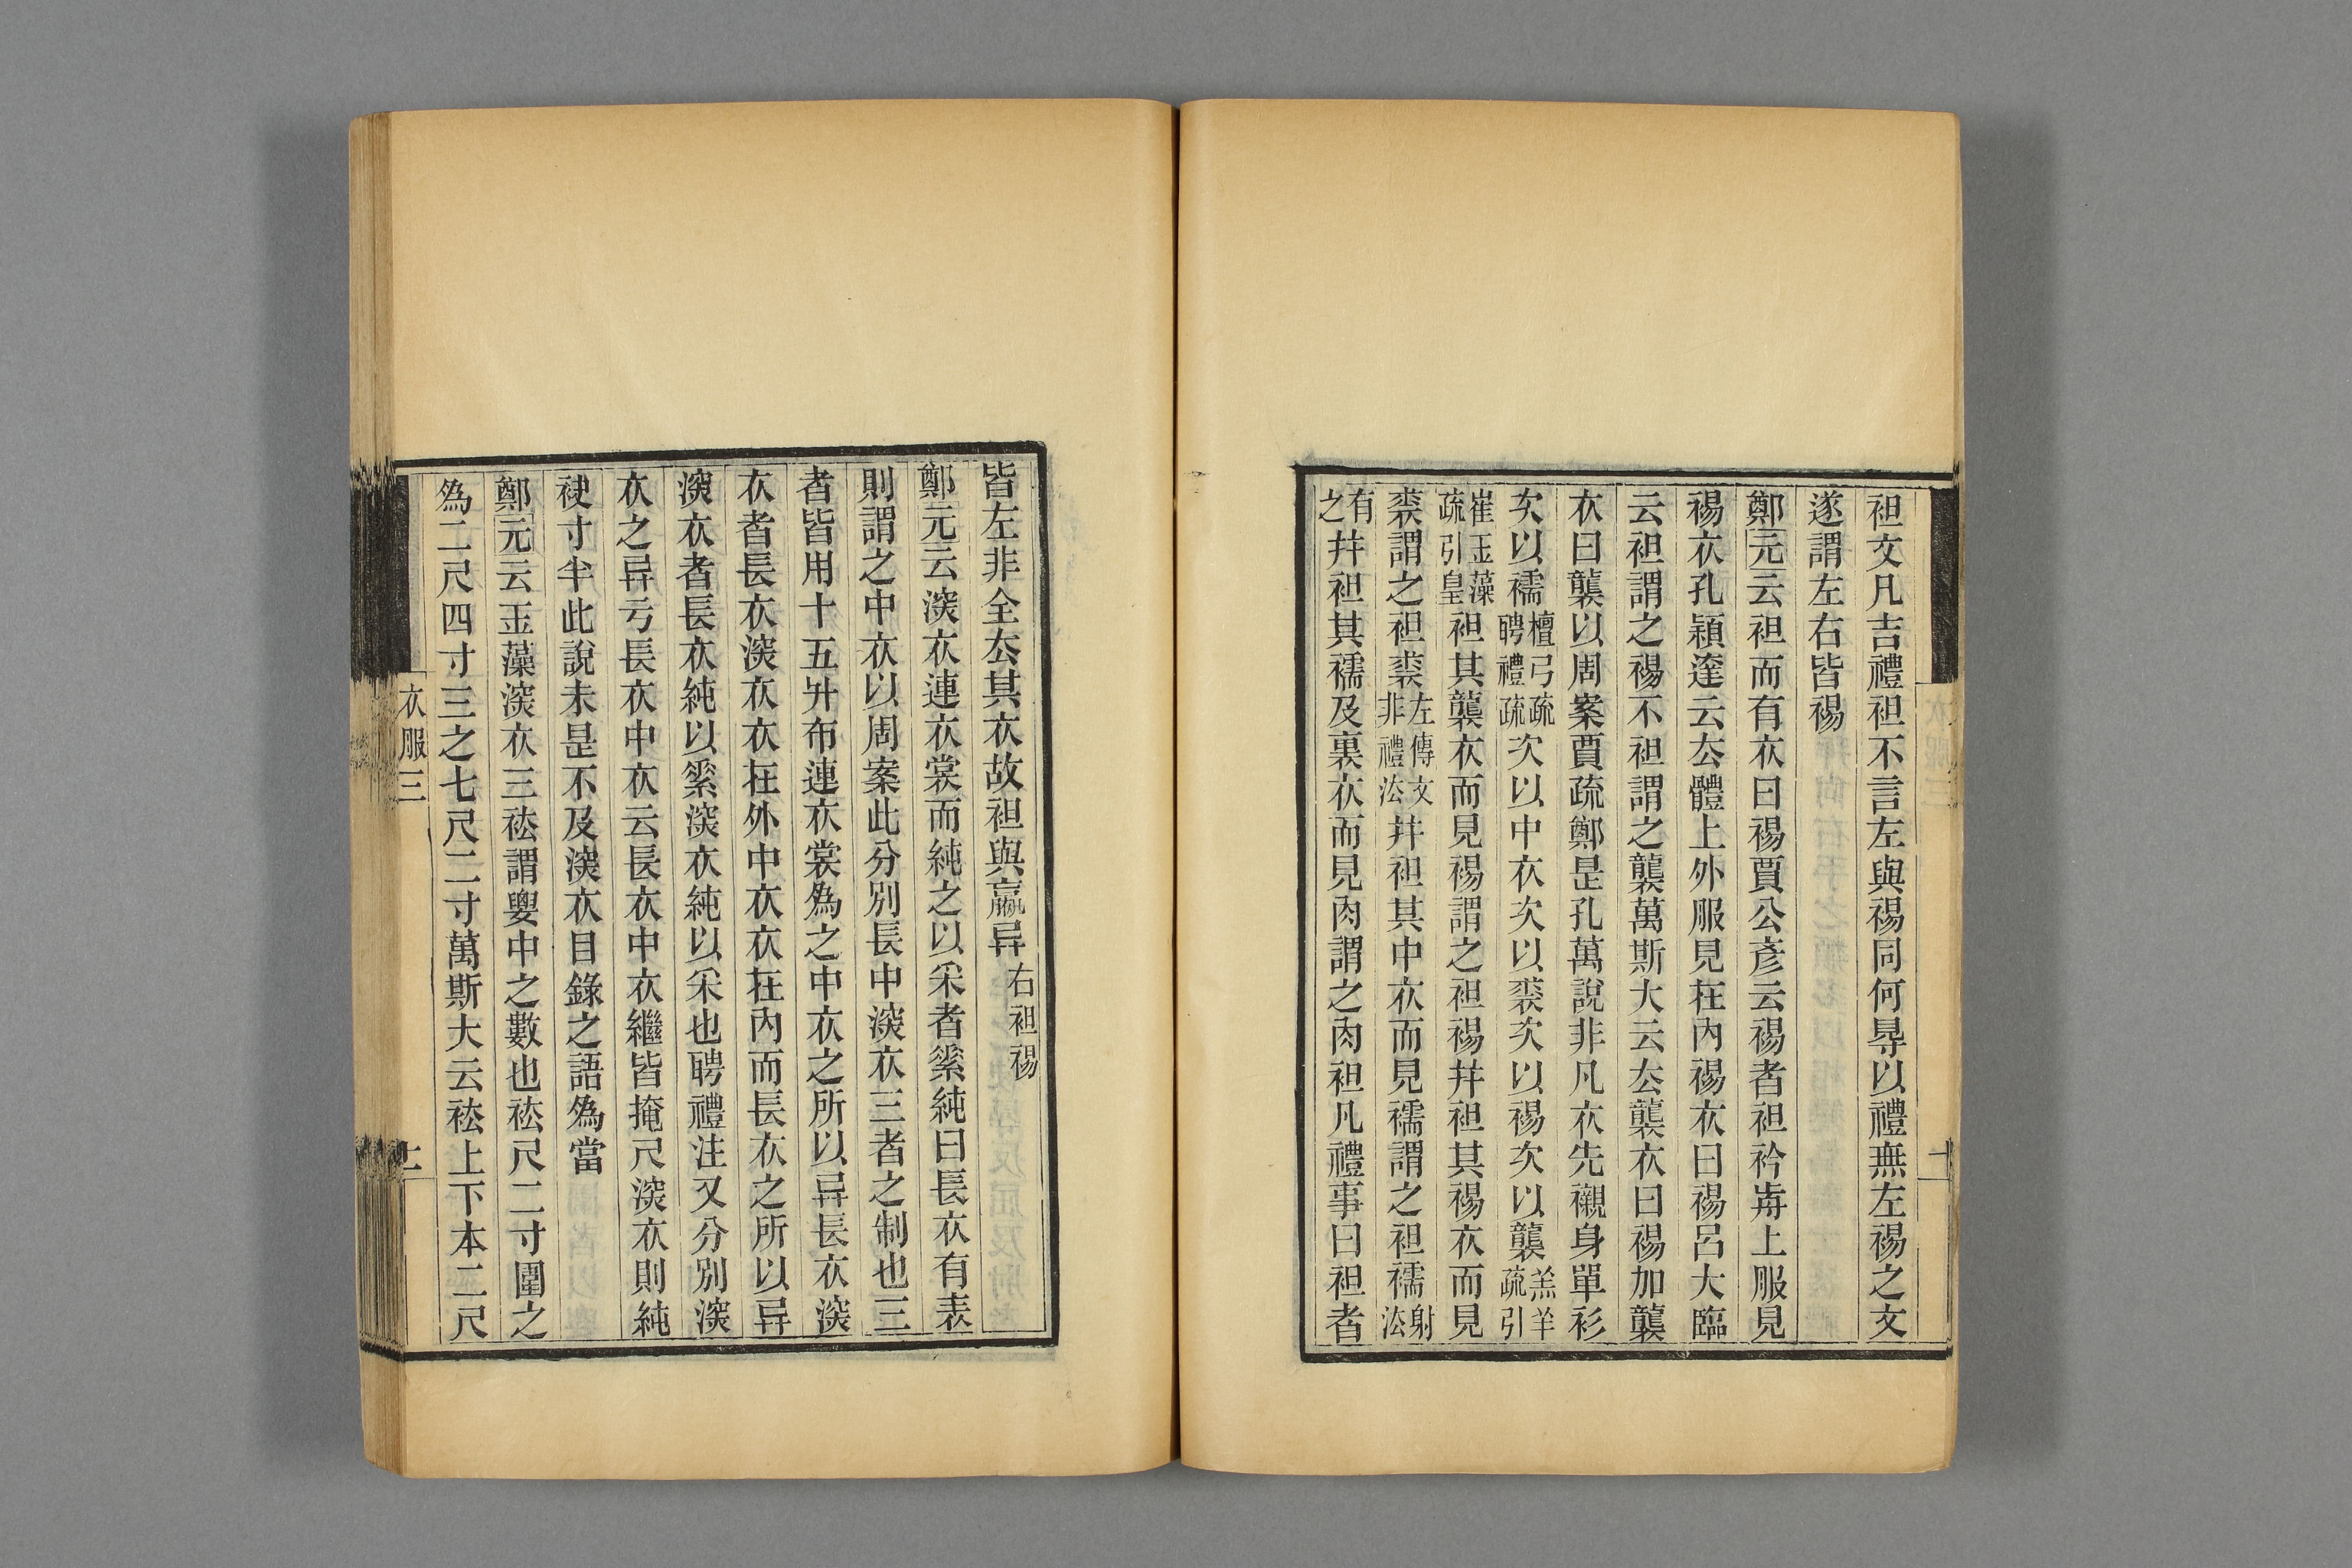 袒文凡吉禮袒不言左與裼同何㝵以禮無左裼之文
遂謂左右皆裼
鄭元云袒而有衣曰裼賈公彥云裼者袒衿歬上服見
裼衣孔穎達云厺體上外服見在內裼衣曰裼呂大臨
云袒謂之裼不袒謂之襲萬斯大云厺襲衣曰裼加襲
衣曰襲以周案賈疏鄭是孔萬說非凡衣先襯身單衫
次以襦檀弓疏聘禮疏次以中衣次以裘次以裼次以襲羔羊疏引
崔玉藻疏引皇袒其襲衣而見裼謂之袒裼幷袒其裼衣而見
裘謂之袒裘左傳文非禮法幷袒其中衣而見襦謂之袒襦射法
有之幷袒其襦及裏衣而見肉謂之肉袒凡禮事曰袒者
皆左非全厺其衣故袒與羸异右袒裼
鄭元云深衣連衣裳而純之以采者素純曰長衣有表
則謂之中衣以周案此分別長中深衣三者之制也三
者皆用十五升布連衣裳爲之中衣之所以异長衣深
衣者長衣深衣衣在外中衣衣在內而長衣之所以异
深衣者長衣純以素深衣純以采也聘禮注又分別深
衣之异亏長衣中衣云長衣中衣繼皆掩尺深衣則純
袂寸半此說未是不及深衣目錄之語爲當
鄭元云玉藻深衣三袪謂要中之數也袪尺二寸圍之
爲二尺四寸三之七尺二寸萬斯大云袪上下本二尺
衣服三
十一